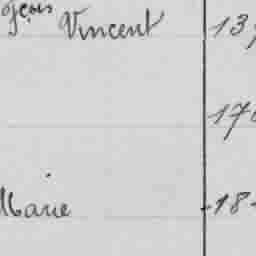 gçois Vincent 13
170
Marie 18